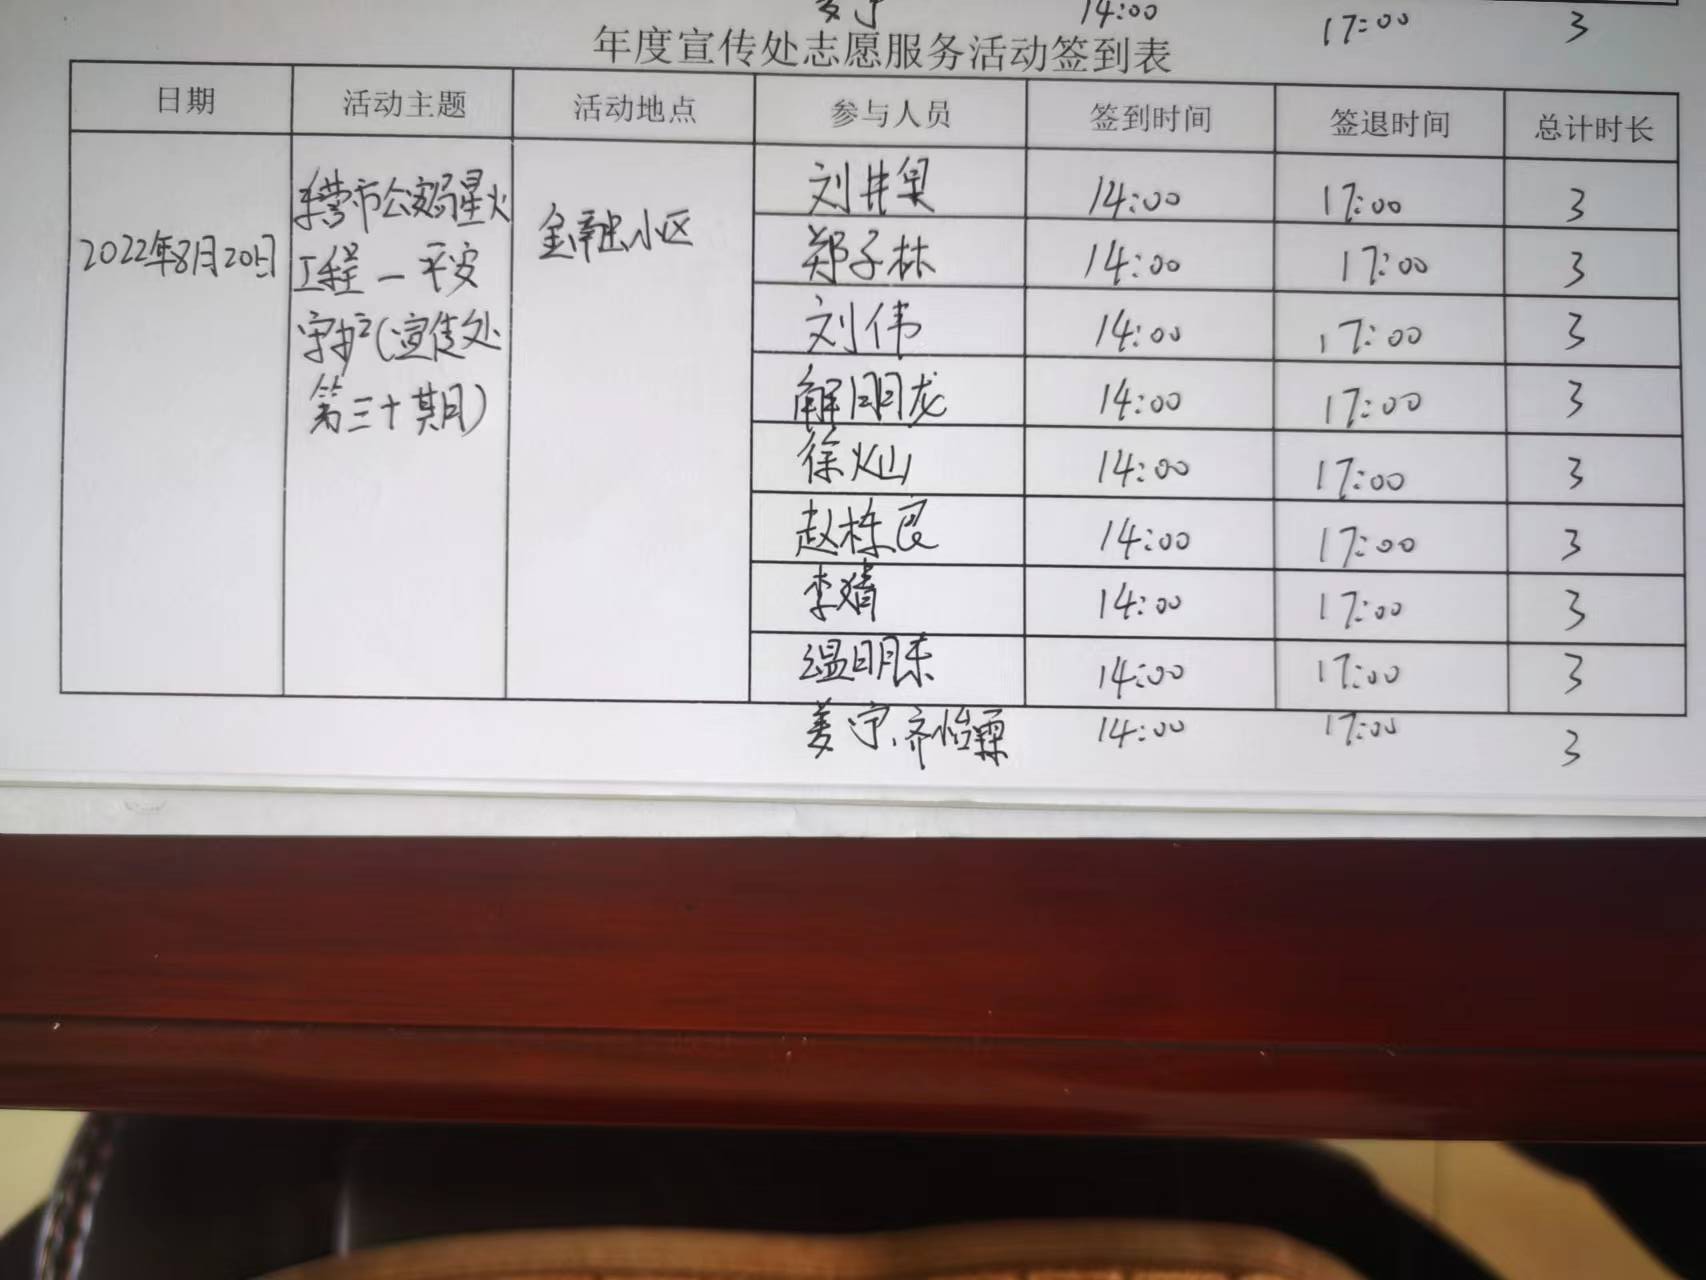 姜宁 14:00 17:00 3
年度宣传处志愿服务活动签到表
日期 活动主题 活动地点 参与人员 签到时间 签退时间 总计时长
2022年8月20日
东营市公安局星火
工程一平安
守护(宣传处
第三十期)
金融小区
刘井 14:00 17:00 3
郑子林 14:00 17:00 3
刘伟 14:00 17:00 3
解明龙 14:00 17:00 3
徐灿 14:00 17:00 3
赵栋良 14:00 17:00 3
李婧 14:00 17:00 3
温明东 14:00 17:00 3
姜宁、齐怡霖 14:00 17:00 3